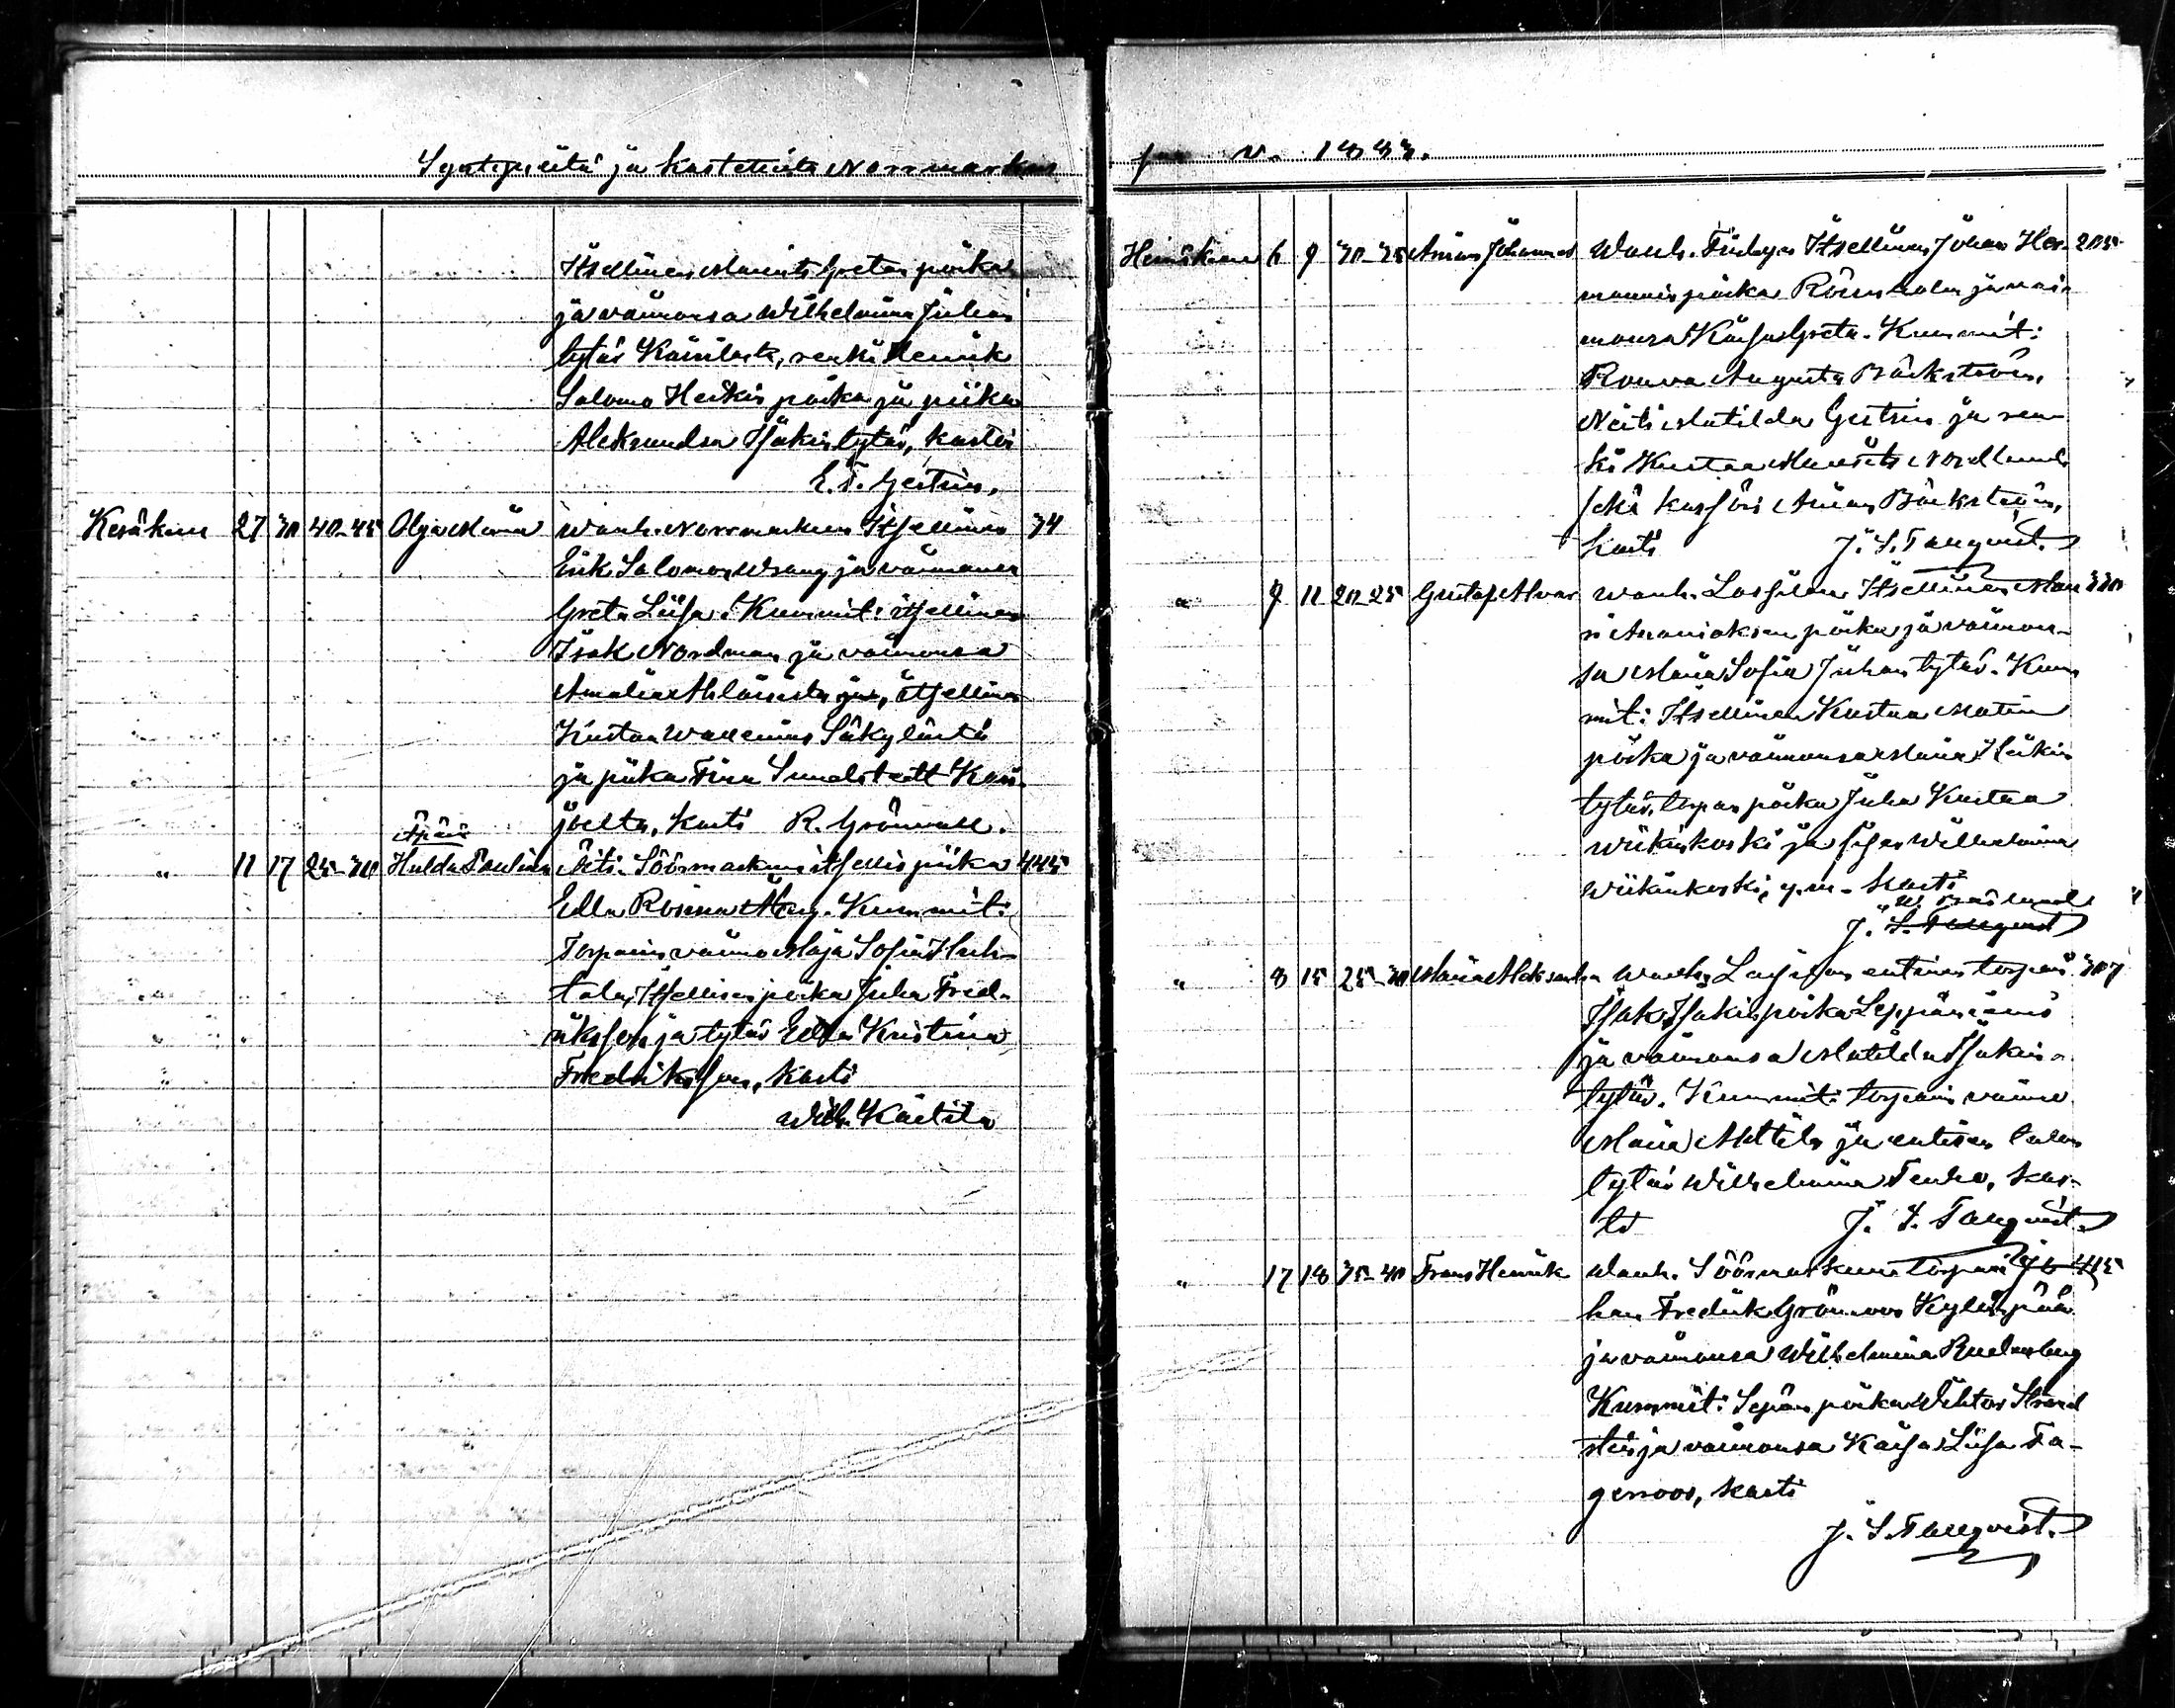 Syntyneitä ja kastetuita Norrmarkun
Itsellinen Maurits Gretan poika
ja vaimonsa Wilhelmina Juhan
tytär renki Henrik
Salomo Heikin poika ja piika
Aleksandra Isakin tytär, kastoi
E. F. Gestrin.
Kesäkuu 27 30 40-45 Olga Maria Wanh. Norrmarkun Itsellinen 34
Erik Salomon Wrang ja vaimonsa
Greta Liisa. Kummit: itsellinen
Isak Nordman ja vaimonsa
Amalia Ahlaisista ja, itsellinen
Kustaa Wallenius Säkylästä
ja piika Fina Sundstedt
joelta, Kasti R. Grönvall.
Äpärä
" 11 17 25-30 Hulda Paulina Äiti: Söörmarkun itsellis piika 445
Edla Rosina Kummit:
Torparin vaimo Maja Sofia Huh-
tala, Itsellisen poika Juha Fred-
riksson ja tytär Edla Kristina
Fredriksson, Kasti
Wilh. Kärtilä
v. 1883.
Heinäkuu 6 9 30-35 Johannes Wanh. Finbyn Itsellinen Johan Her- 205
mannin poika Rosenholm ja vai-
monsa Kaisa Greta. Kummit:
Rouva Augusta Bäckström,
Neiti Matilda Gestrin ja ren-
ki Kustaa Maurits Nordlund
sekä Bäckström,
Kasti J. S. Tallqvist.
" 9 11 20-25 Gustaf Alvar Wanh. Lassilan Itsellinen Mau 330
ri Ananiaksen poika ja vaimon-
sa Maria Sofia Juhan tytär. Kum
mit: Itsellinen Kustaa Matin
poika ja vaimonsa Maria Heikin
tytär, torpan poika Juha Kustaa
Wiikinkoski ja Wilhelmina
Wiikinkoski, y.m. Kasti
J. S. Tallqvist
" 8 15 25-30 Maria Aleksandra Wanh. Lassilan entinen torpari 307
Isak Isakin poika Leppäniemi
ja vaimonsa Matilda Isakin-
tytär. Kummit: torparin vaimo
Maria Anttila ja entisen talon
tytär Wilhelmina Tenho, Kas-
ti J. S. Tallqvist
" 17 18 35-40 Frans Henrik Wanh. Söörmarkun torpari Jo- 415
han Fredrik Grönroos Kylänpää
ja vaimonsa Wilhelmina Rudenberg
Kummit: Sepän poika Wihtor Strand
sten ja vaimonsa Kaisa Liisa Fa-
gerroos, Kasti
J. S. Tallqvist.